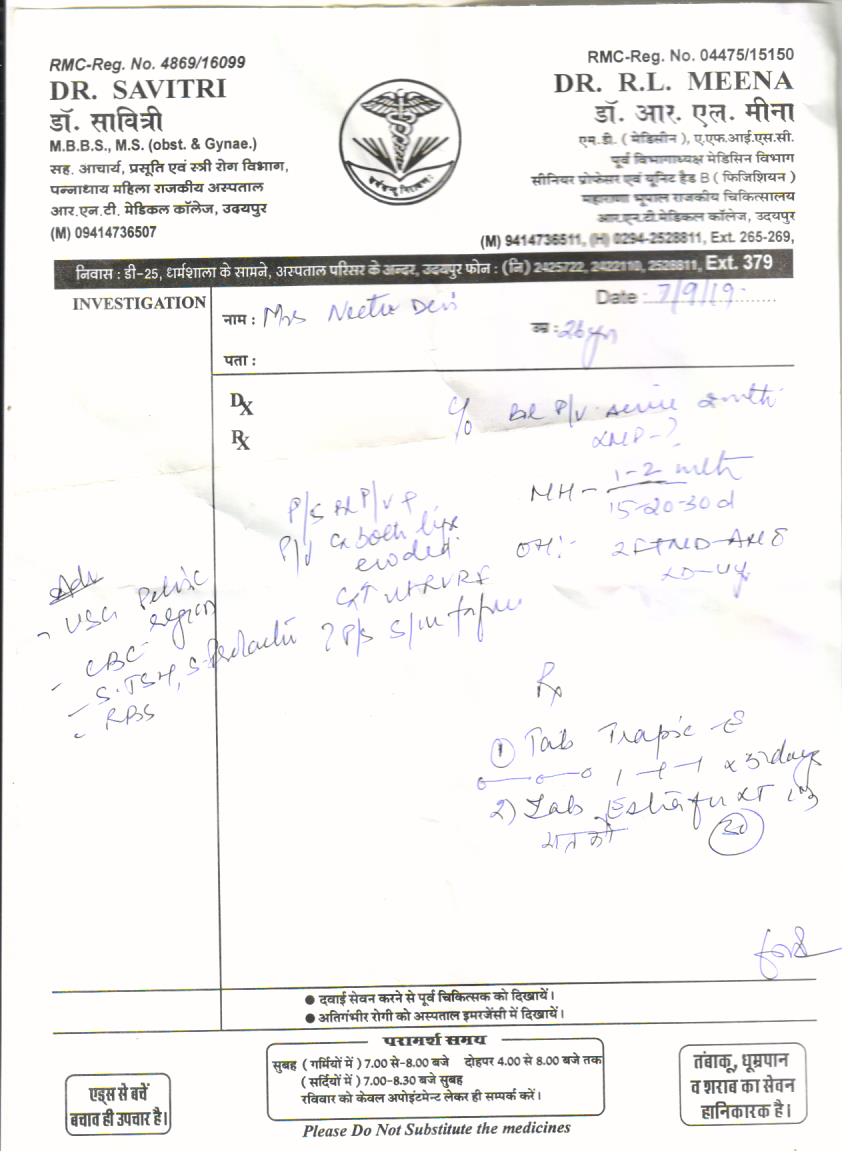 RMC-Reg. No. 4869/16099
DR. SAVITRI
डॉ. सावित्री
M.B.B.S., M.S. (obst. & Gynae.)
सह. आचार्य, प्रसूति एवं स्त्री रोग विभाग,
पन्नाधाय महिला राजकीय अस्पताल
आर.एन.टी. मेडिकल कॉलेज, उदयपुर
(M) 09414736507
RMC-Reg. No. 04475/15150
DR. R.L. MEENA
डॉ. आर. एल. मीना
एम.डी. ( मेडिसीन ), ए.एफ.आई.एस.सी.
पूर्व विभागाध्यक्ष मेडिसिन विभाग
सीनियर प्रोफेसर एवं यूनिट हैड B ( फिजिशियन )
महाराणा भूपाल राजकीय चिकित्सालय
आर.एन.टी.मेडिकल कॉलेज, उदयपुर
(M) 9414736511, (H) 0294-2528811, Ext. 265-269,
निवास : डी-25, धर्मशाला के सामने, अस्पताल परिसर के अन्दर, उदयपुर फोन : (नि) 2425722, 2422110, 2528811, Ext. 379
INVESTIGATION
Date : 7/9/19
नाम : Mrs Neetu Devi
उम्र : 26 yr
पता :
DX
RX
c/o Bl P/V since 2 mth
LMP-?
MH - 1-2 mth
15-20-30 d
P/S Bl P/V +
P/V Cx both lips
eroded
OH:-
USG Pelvic
region
CBC
S.TSH, S.Prolactin
RBS
Rx
① Tab Trapic E
1-1-1 x 3 days
2) Tab
रात को
30
● दवाई सेवन करने से पूर्व चिकित्सक को दिखायें।
● अतिगंभीर रोगी को अस्पताल इमरजेंसी में दिखायें।
परामर्श समय
सुबह ( गर्मियों में ) 7.00 से-8.00 बजे दोहपर 4.00 से 8.00 बजे तक
( सर्दियों में ) 7.00-8.30 बजे सुबह
रविवार को केवल अपोइंटमेन्ट लेकर ही सम्पर्क करें।
एड्स से बचें
बचाव ही उपचार है।
तंबाकू, धूम्रपान
व शराब का सेवन
हानिकारक है।
Please Do Not Substitute the medicines